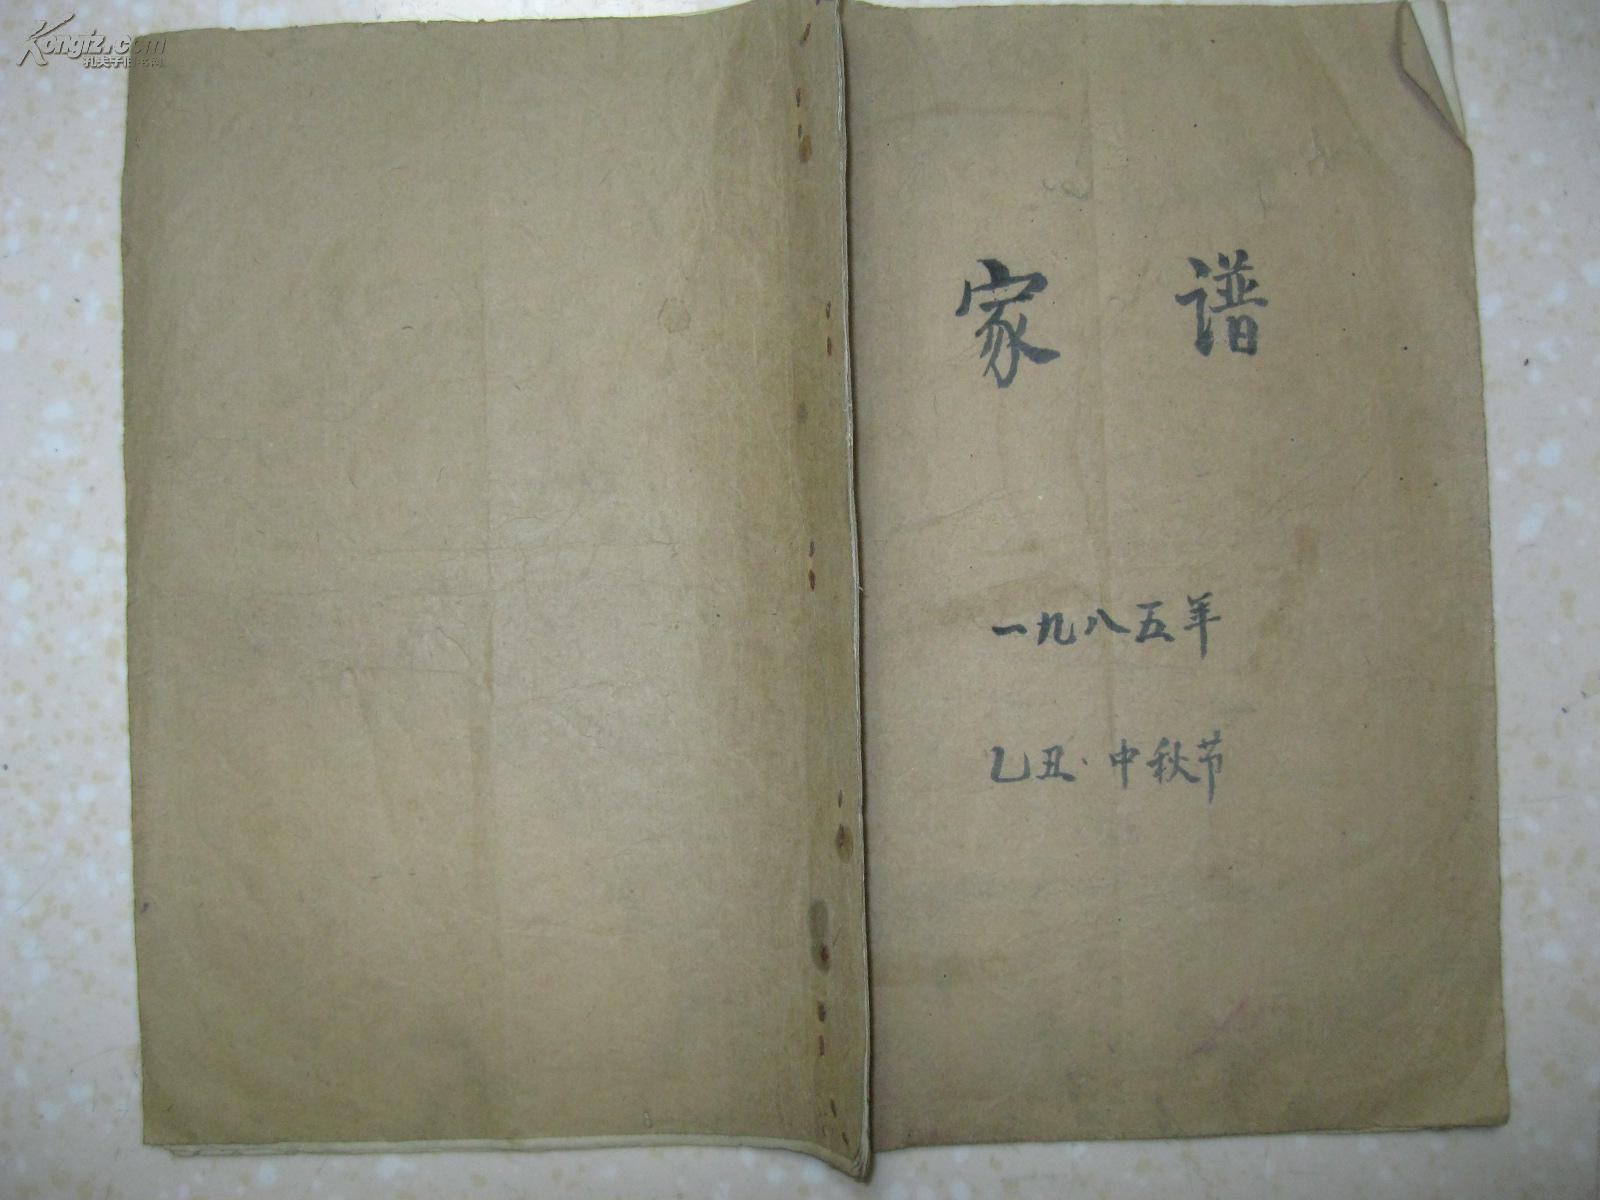 Kongfz.com
孔夫子旧书网
家谱
一九八五年
乙丑·中秋节